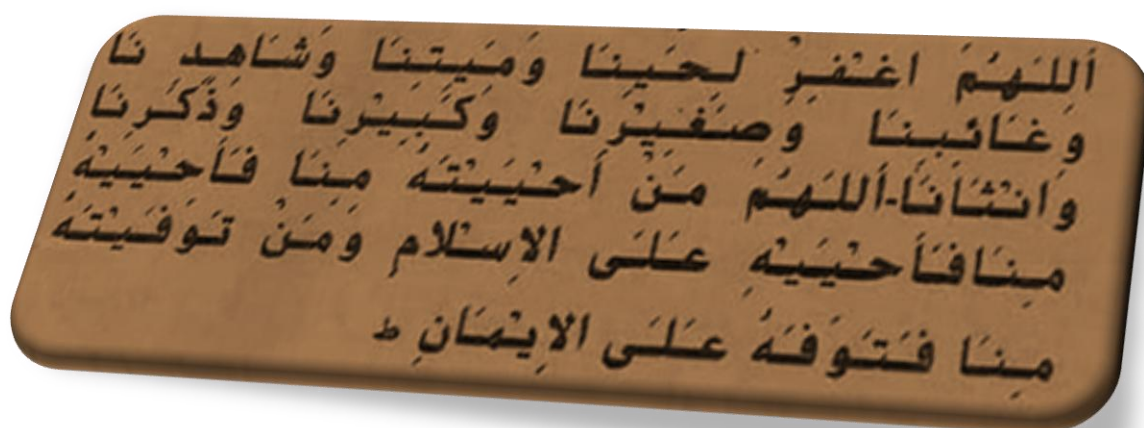 اَللَهُمَ اغْفِرْ لِحَيِنَا وَمَيِتِنَا وَشَاهِدِ نَا
وَغَائبِنَا وَصَغِيْرِنَا وَكَبِيْرِنَا وَذَكَرِنَا
وَاُنْثَانَا-اَللَهُمَ مَنْ اَحْيَيْتَهُ مِنَا فَاَحْيَيْهِ
مِنَافَاَحْيَيْهِ عَلَى الاِسْلامِ وَمَنْ تَوَفَيْتَهُ
مِنَا فَتَوَفَهُ عَلَى الاِيْمَانِ ط